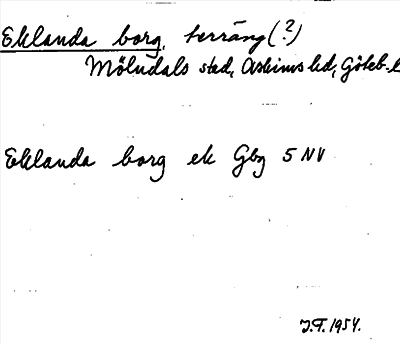 Eklanda borg, terräng (?)
Mölndals stad, Askims hd, Göteb. l
Eklanda borg ek Gbg 5 NV
J.F. 1954.